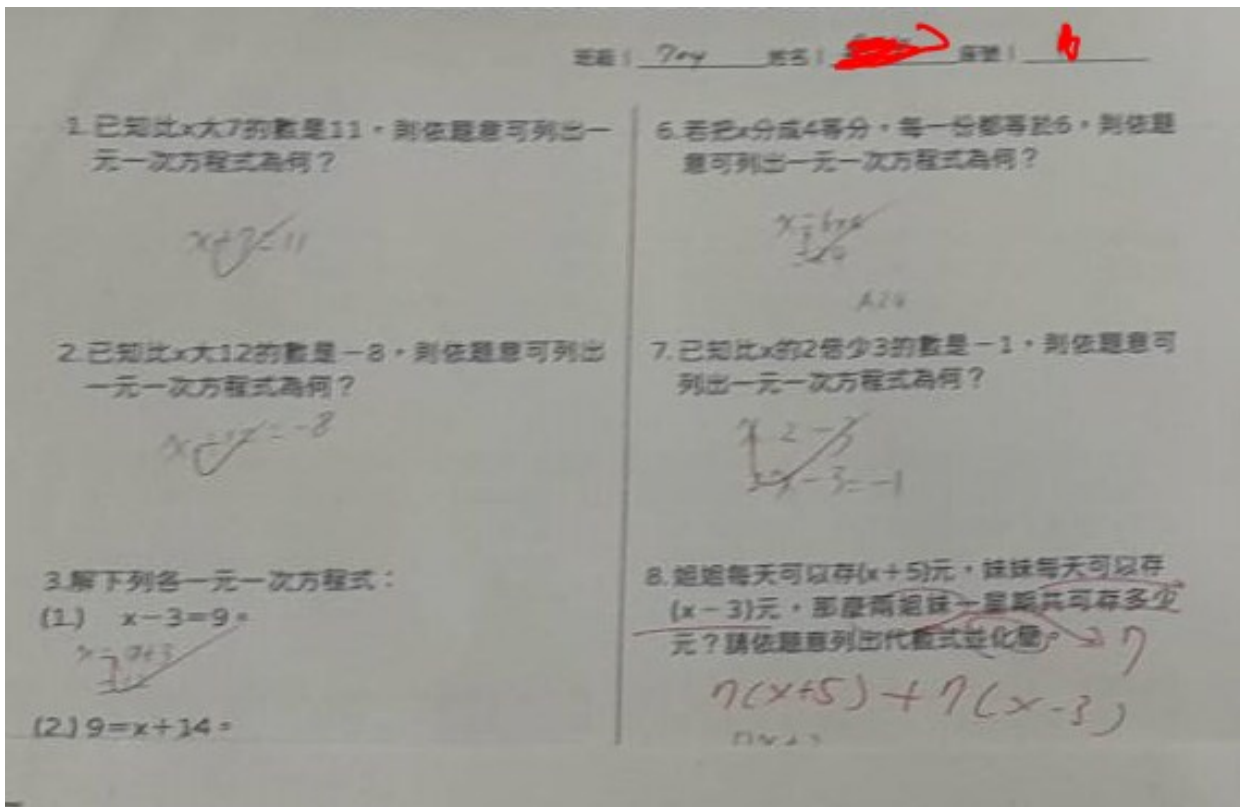 班級：704 姓名： 座號：
1.已知比x大7的數是11，則依題意可列出一
元一次方程式為何？
x+7=11
2.已知比x大12的數是－8，則依題意可列出
一元一次方程式為何？
x+12=-8
3.解下列各一元一次方程式：
(1.) x－3=9。
x=9+3
(2.) 9=x+14。
6.若把x分成4等分，每一份都等於6，則依題
意可列出一元一次方程式為何？
x=6×4
=24
A24
7.已知比x的2倍少3的數是－1，則依題意可
列出一元一次方程式為何？
x 2-3
2x-3=-1
8.姐姐每天可以存(x+5)元，妹妹每天可以存
(x－3)元，那麼兩姐妹一星期共可存多少
元？請依題意列出代數式並化簡。 7
7(x+5)+7(x-3)